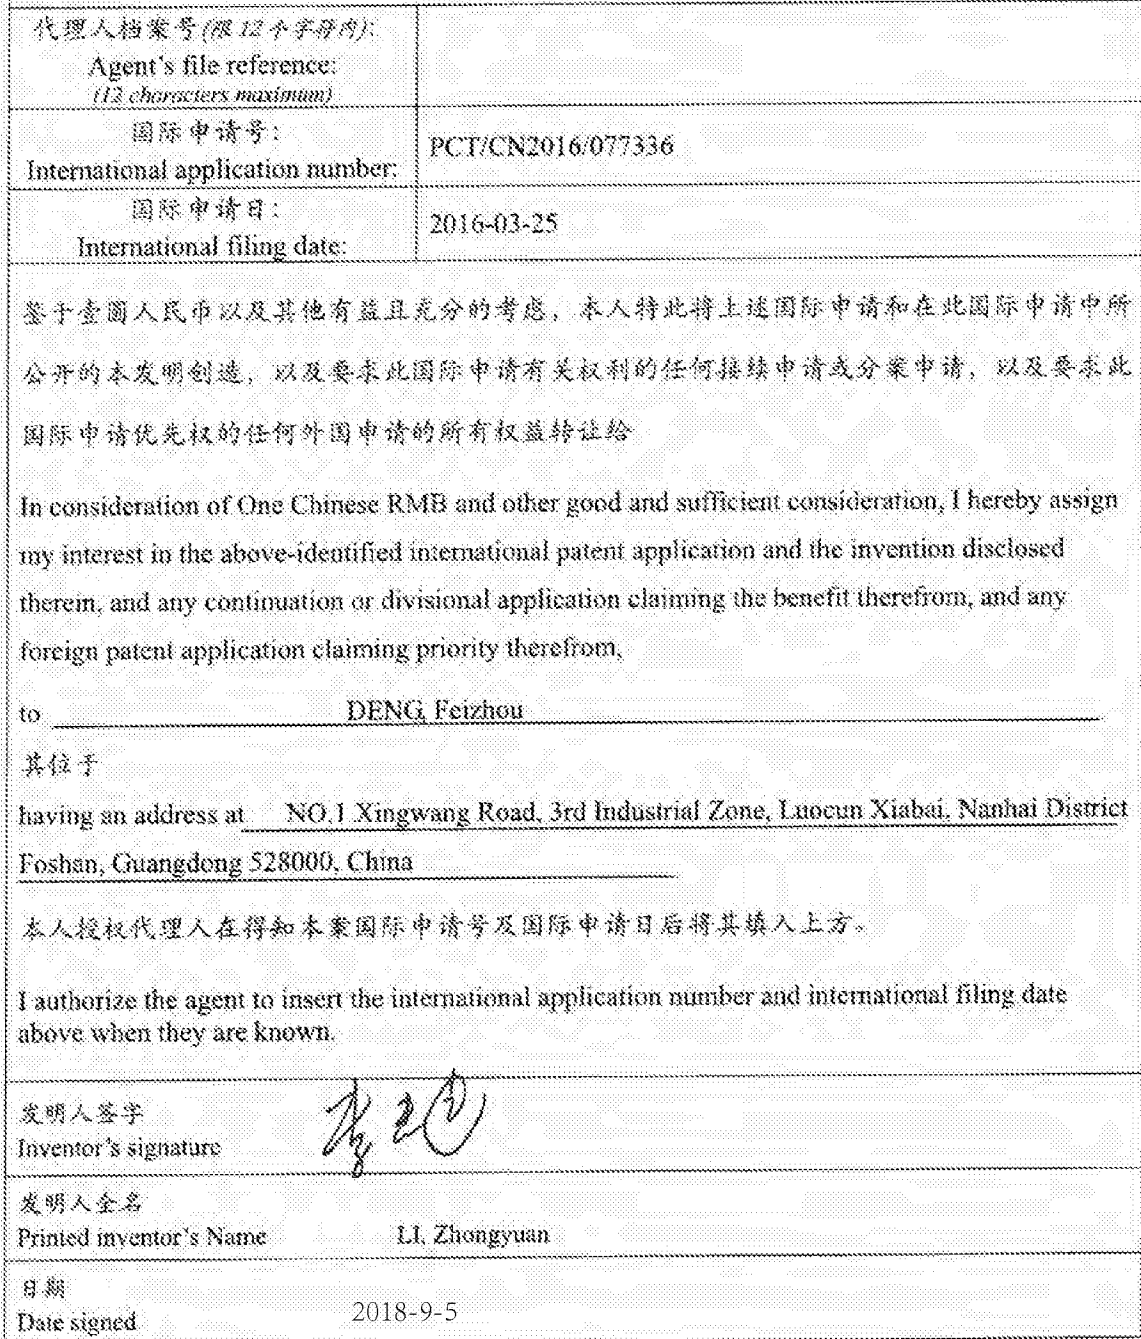 代理人档案号(限12个字符内):
Agent's file reference:
(12 characters maximum)
国际申请号:
International application number:
PCT/CN2016/077336
国际申请日:
International filing date:
2016-03-25
鉴于壹圆人民币以及其他有益且充分的考虑，本人特此将上述国际申请和在此国际申请中所
公开的本发明创造，以及要求此国际申请有关权利的任何接续申请或分案申请，以及要求此
国际申请优先权的任何外国申请的所有权益转让给
In consideration of One Chinese RMB and other good and sufficient consideration, I hereby assign
my interest in the above-identified international patent application and the invention disclosed
therein, and any continuation or divisional application claiming the benefit therefrom, and any
foreign patent application claiming priority therefrom,
to DENG, Feizhou
其位于
having an address at NO.1 Xingwang Road, 3rd Industrial Zone, Luocun Xiabai, Nanhai District
Foshan, Guangdong 528000, China
本人授权代理人在得知本案国际申请号及国际申请日后将其填入上方。
I authorize the agent to insert the international application number and international filing date
above when they are known.
发明人签字
Inventor's signature
发明人全名
Printed inventor's Name LI, Zhongyuan
日期
Date signed 2018-9-5